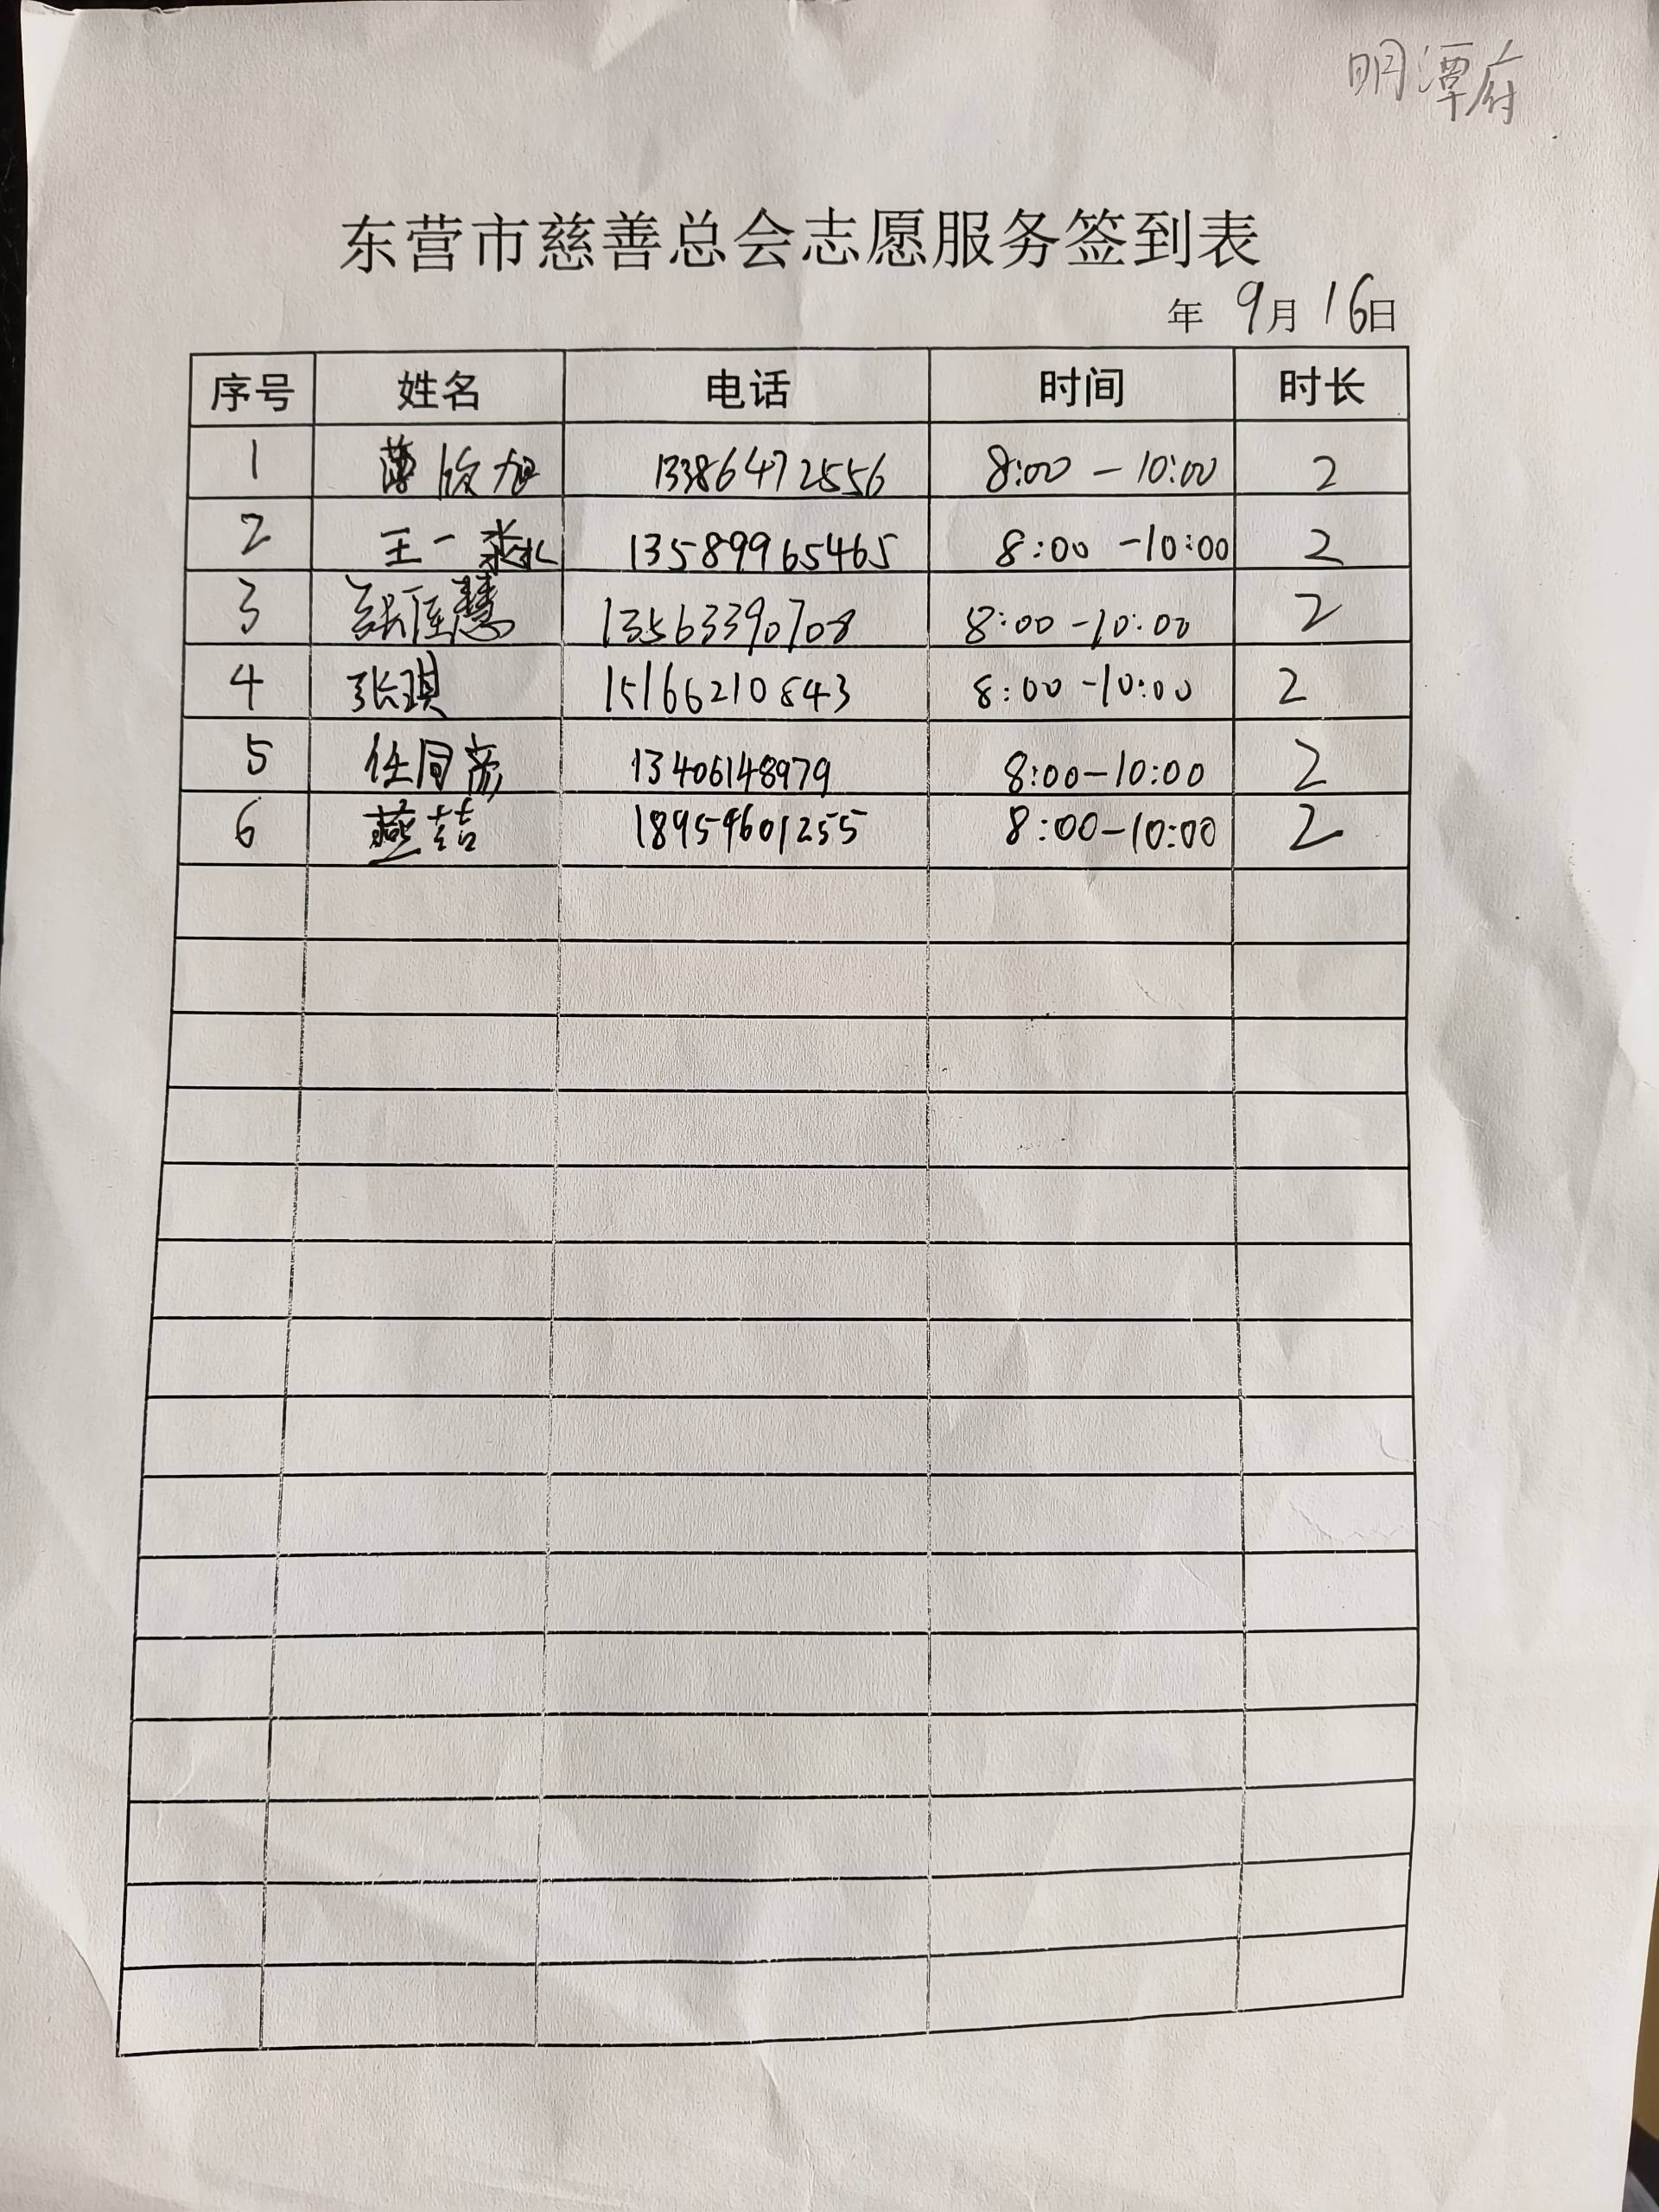 明潭府
东营市慈善总会志愿服务签到表
年 9月 16日
序号 姓名 电话 时间 时长
1 薄 旭 13386472556 8:00 - 10:00 2
2 王一 13589965465 8:00 - 10:00 2
3 张 慧 13563390708 8:00 - 10:00 2
4 张琪 15166210843 8:00 - 10:00 2
5 任同 13406148979 8:00 - 10:00 2
6 燕喆 18954601255 8:00 - 10:00 2